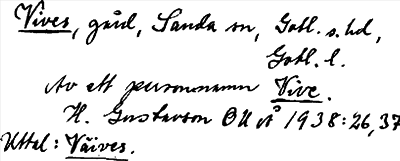 Vives, gård, Sanda sn, Gotl. s. hd,
Gotl. l.
Av ett personnamn Vive.
H. Gustavson OUÅ 1938: 26, 37
Uttal: Väives.